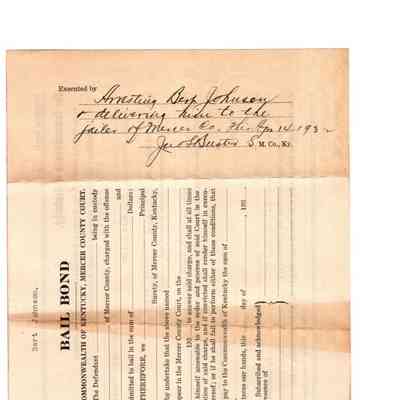 Executed by
Arresting Bert Johnson
& delivering him to the
jailer of Mercer Co. this Apr 14 1932
S. M. Co., Ky.
BAIL BOND
COMMONWEALTH OF KENTUCKY, MERCER COUNTY COURT.
The Defendant being in custody
of Mercer County, charged with the offense
and
admitted to bail in the sum of Dollars:
THEREFORE, we Principal
Surety, of Mercer County, Kentucky,
by undertake that the above named
appear in the Mercer County Court, on the
193 to answer said charge, and shall at all times
himself amenable to the order and process of said Court in the
tion of said charge, and if convicted shall render himself in execu-
thereof; or if he shall fail to perform either of these conditions, that
pay to the Commonwealth of Kentucky the sum of
ness our hands, this day of , 193
Subscribed and acknowledged
esence of